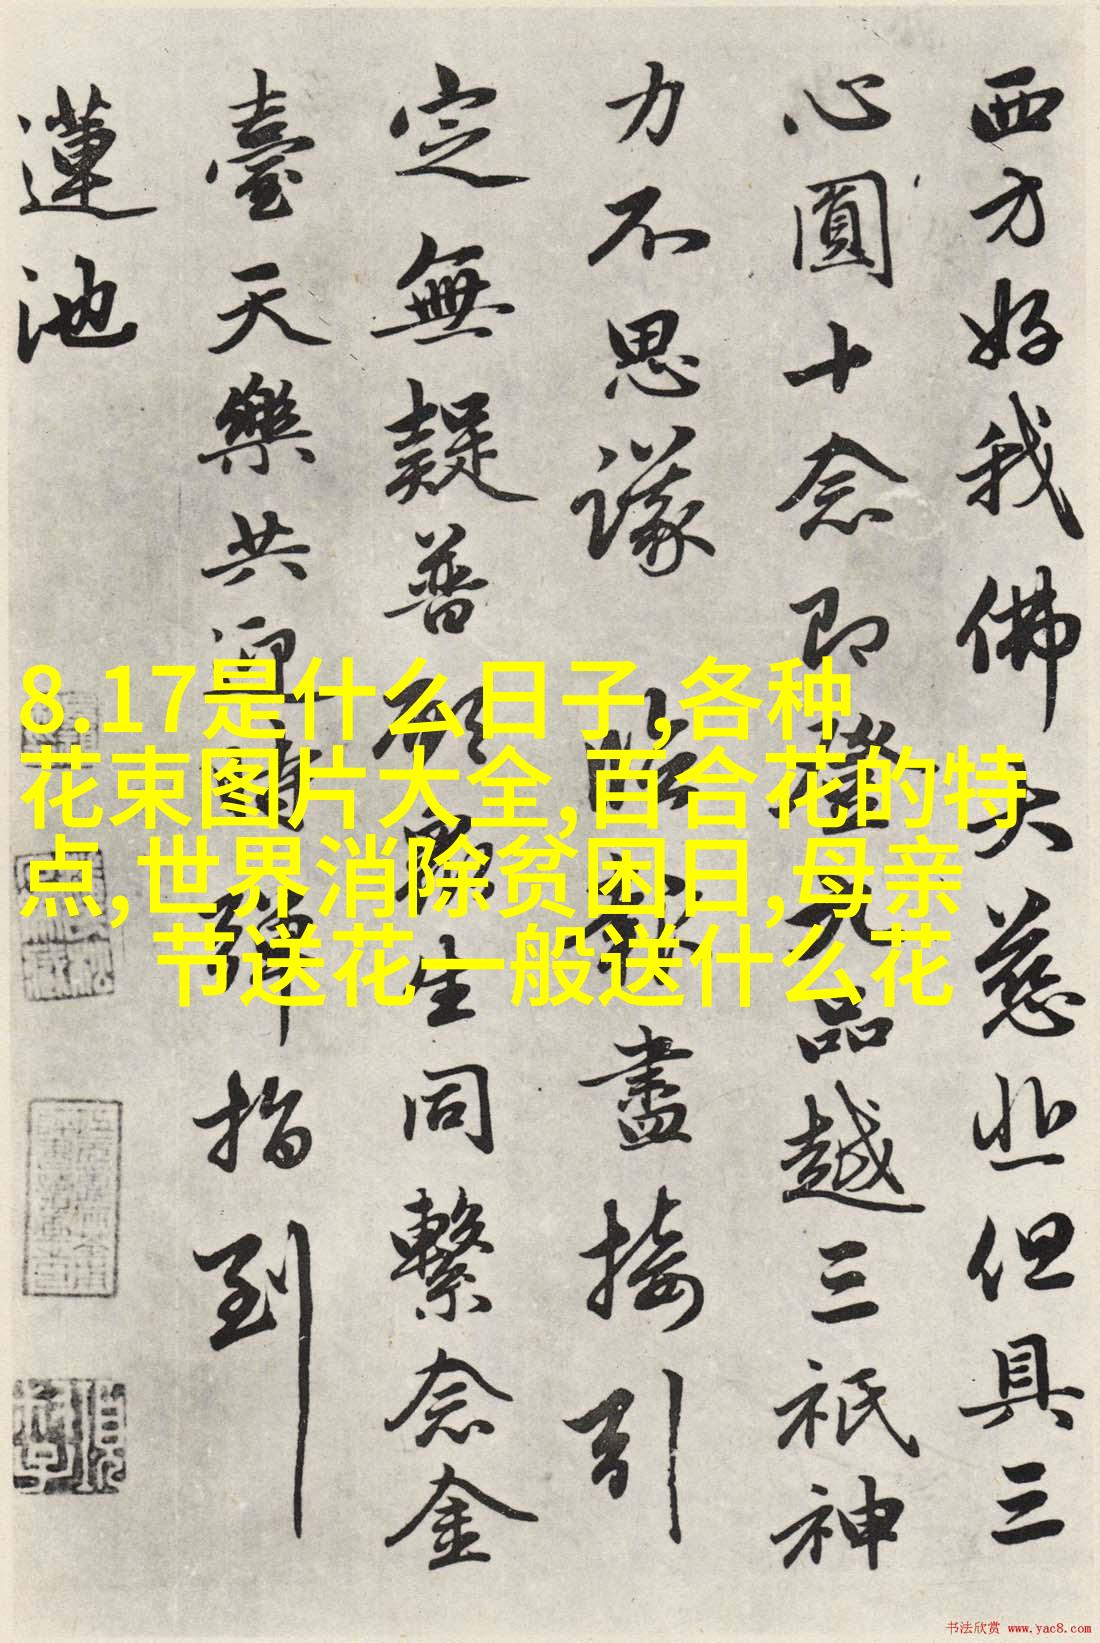 西方好我佛大慈悲但具三
心圓十念即登九品越三祇神
力不思議 臨欽盡接引
定無疑普願眾生同繫念金
臺天樂共迎時彈指到
蓮池
8.17是什么日子,各种
花束图片大全,百合花的特
点,世界消除贫困日,母亲
节送花一般送什么花
书法欣赏 www.yac8.com